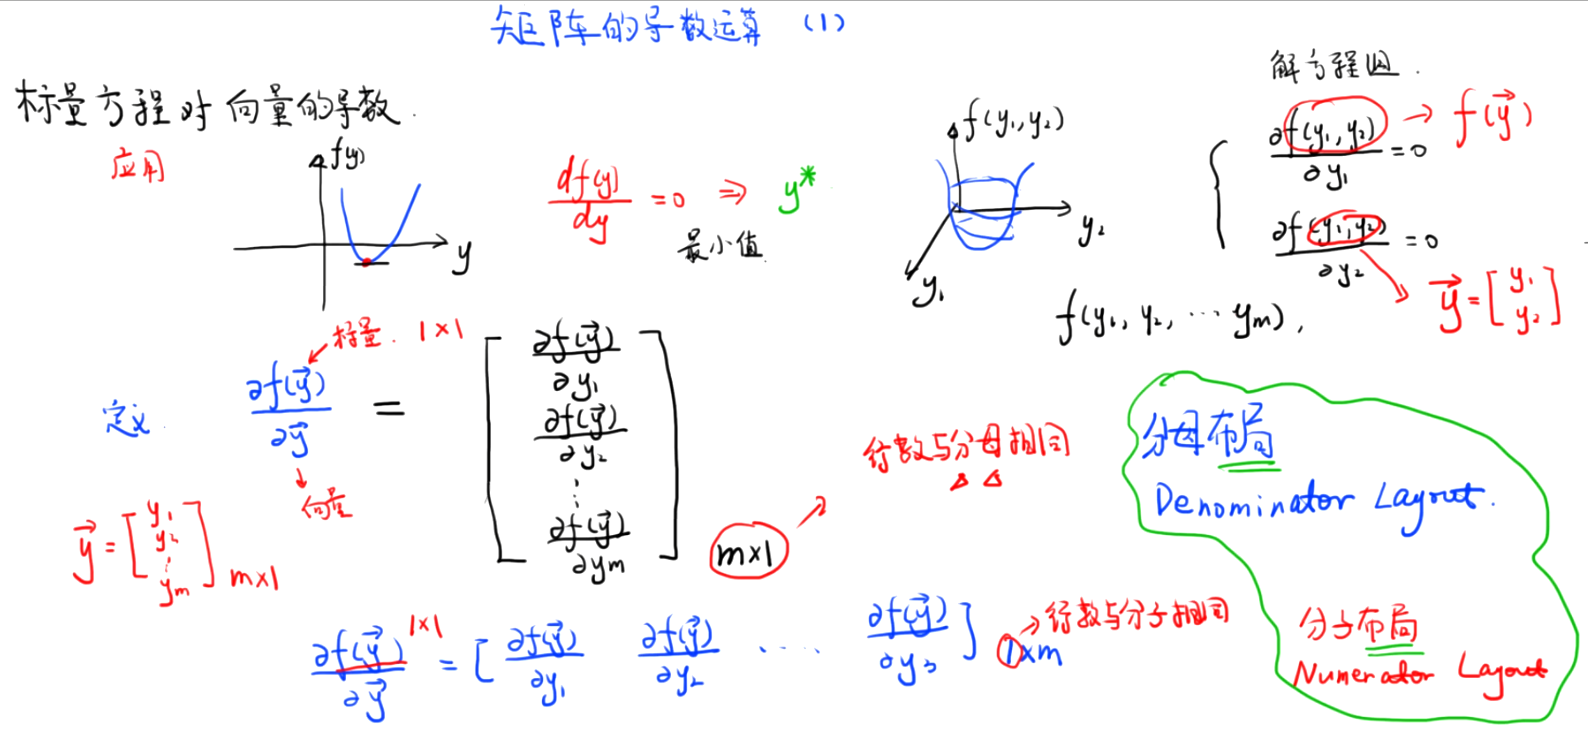 矩阵的导数运算 (1)
标量方程对向量的导数.
应用
f(y)
y
df(y)/dy = 0 ⇒ y*
最小值
f(y₁,y₂)
y₂
y₁
解方程组.
∂f(y₁,y₂)/∂y₁ = 0 → f(y⃗)
∂f(y₁,y₂)/∂y₂ = 0
y⃗ = [y₁ y₂]
f(y₁, y₂, ⋯ yₘ),
标量. 1×1
定义 ∂f(y⃗)/∂y⃗ = [∂f(y⃗)/∂y₁ ∂f(y⃗)/∂y₂ ⋮ ∂f(y⃗)/∂yₘ] m×1
向量
y⃗ = [y₁ y₂ ⋮ yₘ] m×1
行数与分母相同
分母布局
Denominator Layout.
∂f(y⃗)/∂y⃗ 1×1 = [∂f(y⃗)/∂y₁ ∂f(y⃗)/∂y₂ ⋯⋯ ∂f(y⃗)/∂y₃] 1×m
行数与分子相同
分子布局
Numerator Layout